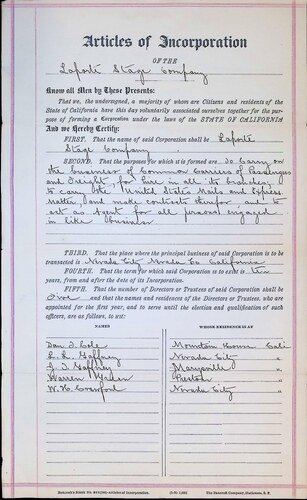 Articles of Incorporation
OF THE
Laporte Stage Company
Know all Men by These Presents:
That we, the undersigned, a majority of whom are Citizens and residents of the
State of California have this day voluntarily associated ourselves together for the pur-
pose of forming a Corporation under the laws of the STATE OF CALIFORNIA
And we Hereby Certify:
FIRST. That the name of said Corporation shall be Laporte
Stage Company
SECOND. That the purposes for which it is formed are To Carry on
the business of Common Carriers of Passengers
and Freight, for hire in all its branches;
to carry the United States Mails and Express
Matter, and make contracts therefor, and to
act as Agent for all persons engaged
in like business
THIRD. That the place where the principal business of said Corporation is to be
transacted is Nevada City, Nevada Co. California
FOURTH. That the term for which said Corporation is to exist is ten
years, from and after the date of its Incorporation.
FIFTH. That the number of Directors or Trustees of said Corporation shall be
Five and that the names and residences of the Directors or Trustees, who are
appointed for the first year, and to serve until the election and qualification of
such officers, are as follows, to wit:
NAMES WHOSE RESIDENCE IS AT
Dan T. Cole Mountain House Cali
Gaffney Nevada City "
J. T. Gaffney Marysville "
Warren "
W. H. Crawford Nevada City "
Bancroft's Blank No. Articles of Incorporation. The Bancroft Company, Stationers, S. F.